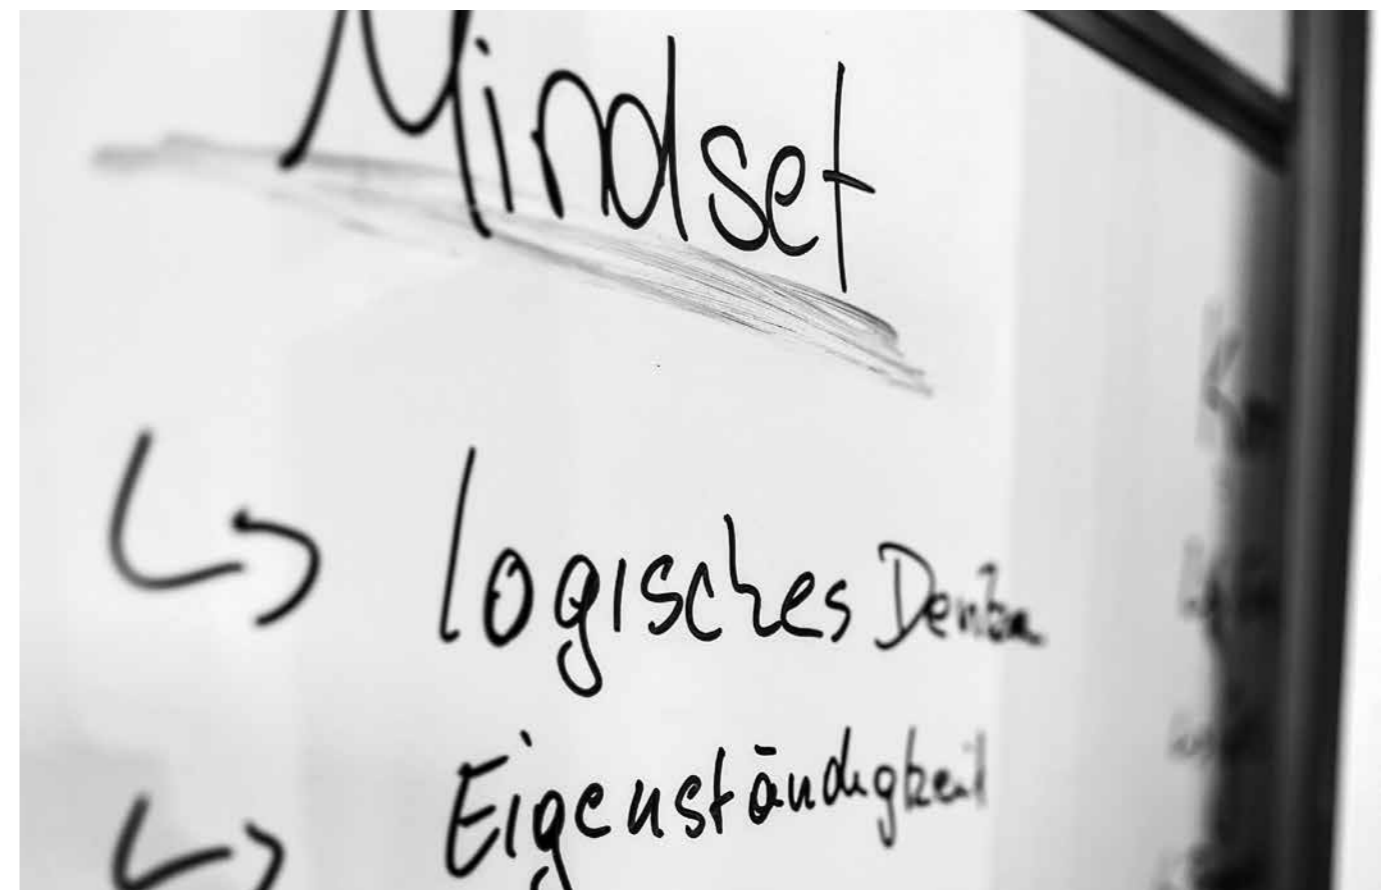 Mindset
↳ logisches Denken
↳ Eigenständigkeit